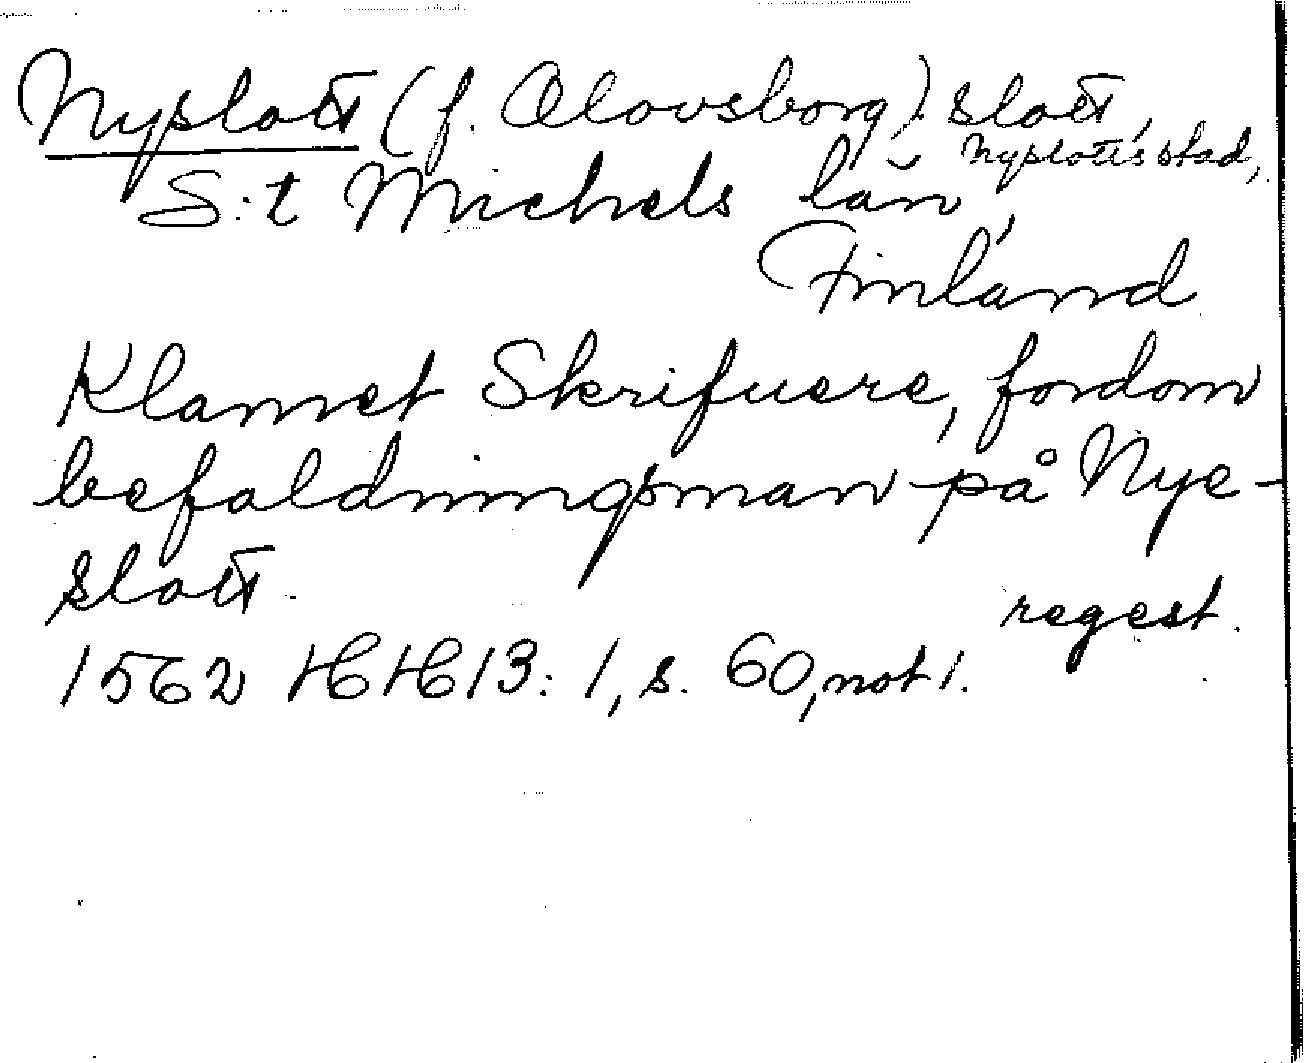 Nyslott (f. Olovsborg). slott,
Nyslotts stad,
S:t Michels län,
Finland
Klamet Skrifuere, fordom
befaldningsman på Nye-
slott.
regest.
1562 HH 13:1, s. 60, not 1.